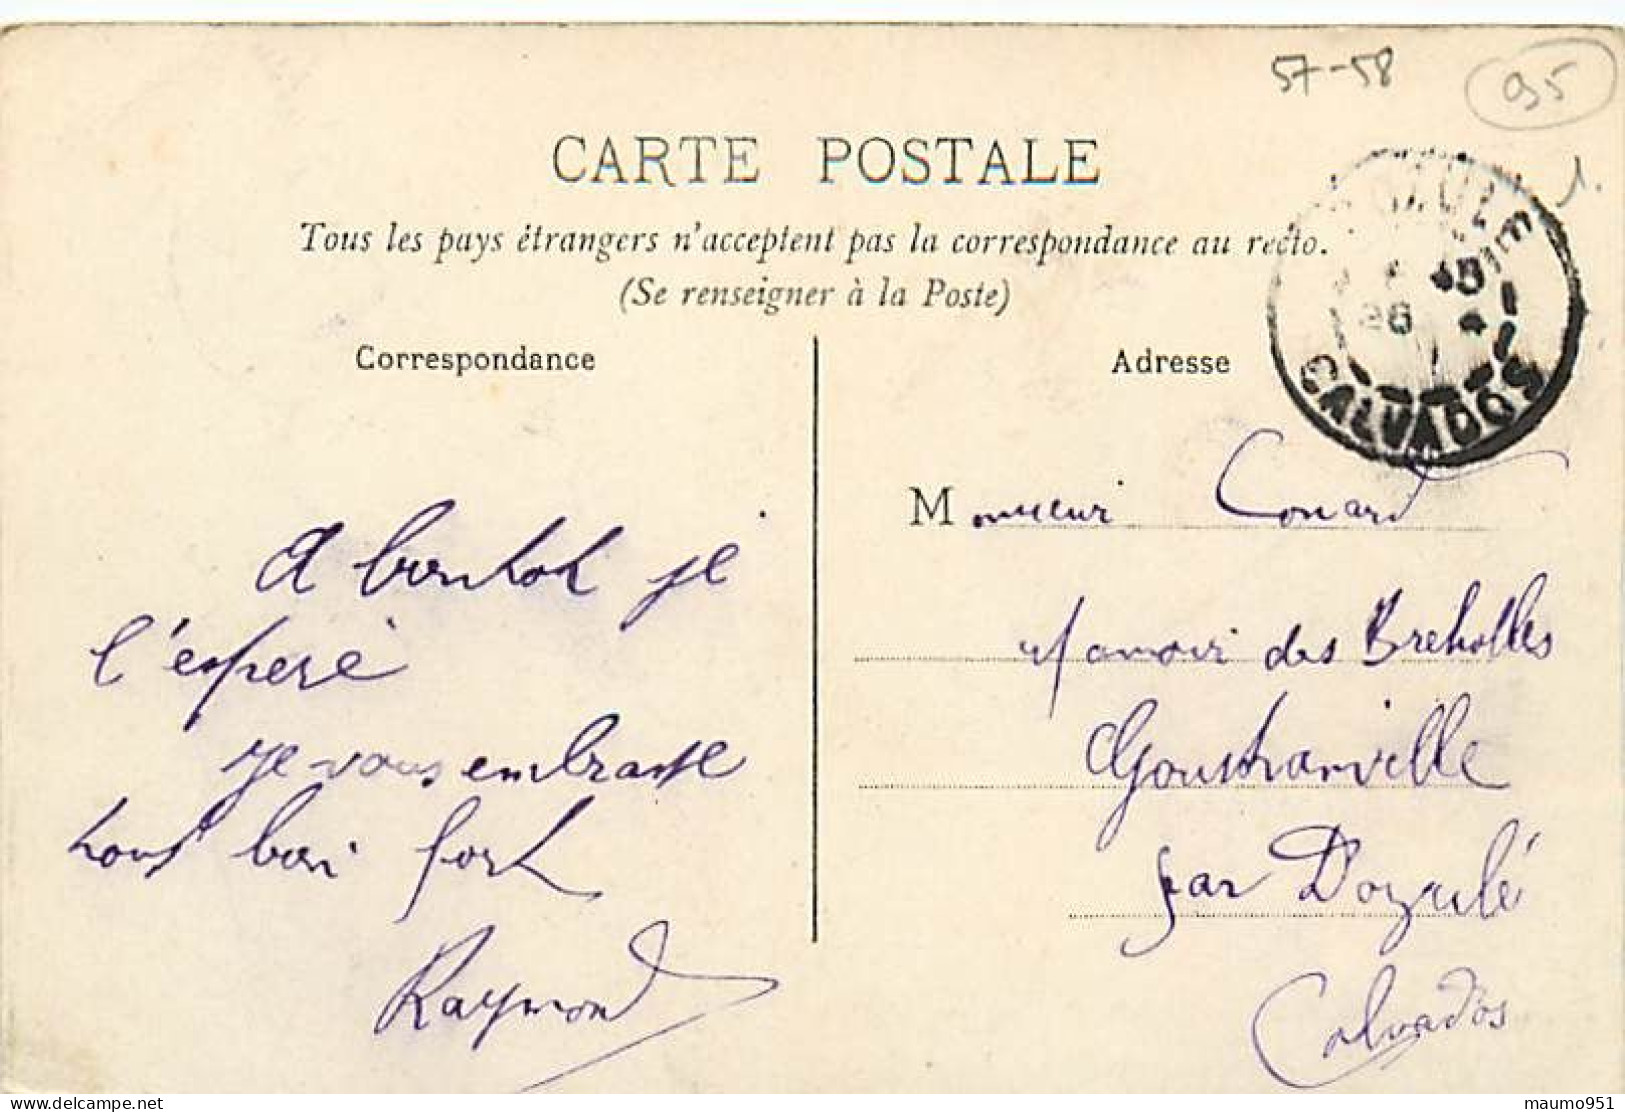 57-58
95
1.
CARTE POSTALE
Tous les pays étrangers n'acceptent pas la correspondance au recto.
(Se renseigner à la Poste)
Correspondance
A bientot je
l'espère
Je vous embrasse
tous bien fort
Raymond
Adresse
CALVADOS
Monsieur Conard
Manoir des Breholles
Goustranville
par Dozulé
Calvados
maumo951